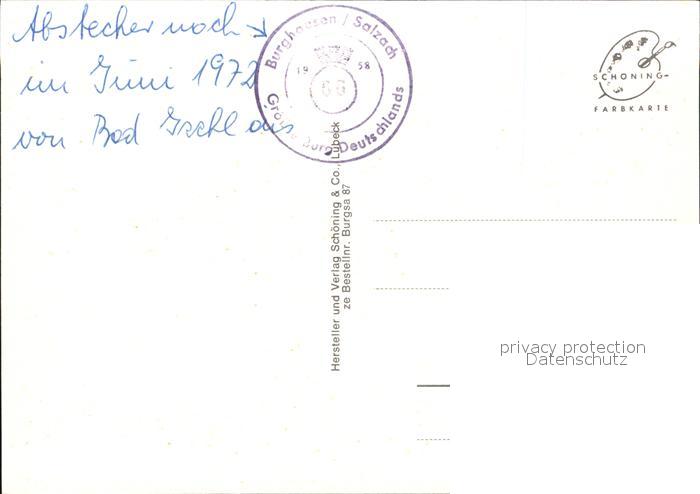 Abstecher nach
im Juni 1972
von Bad Ischl aus
Burghausen / Salzach
19 58
66
Größte Burg Deutschlands
SCHÖNING-
FARBKARTE
Hersteller und Verlag Schöning & Co., Lübeck
ze Bestellnr. Burgsa 87
privacy protection
Datenschutz